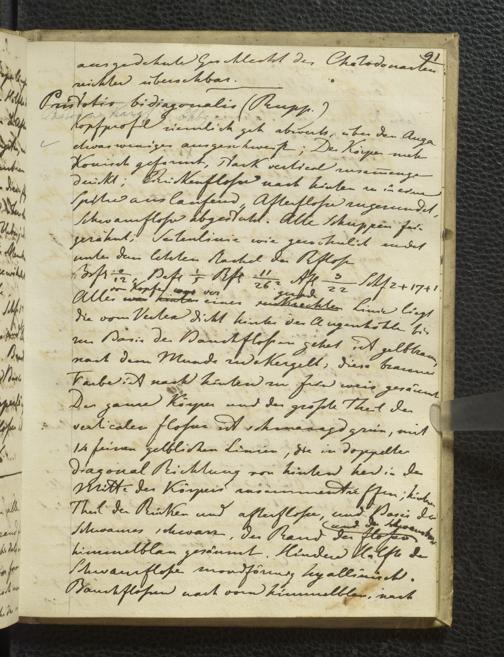 91
ausgedehnte Geschlecht der Chätodonarten
nicht übersehbar.
bidiagonalis (Rupp.)
Kopfprofil ziemlich geh abwärts, über den Auge
etwas weniger ausgeschweift; Der Körper mehr
Konisch geformt, stark vertical zusammenge
drückt; Rückenflosse nach hinten zu in eine
Spitze auslaufend, Afterflosse zugerundet,
Schwanzflosse abgestutzt. Alle Schuppen
Seitenlinie wie gewöhnlich endet
unter dem letzten Stachel der Rflosse
Brfl 12. Bfl 1/5 Rfl 11/26 Afl 3/22 Schfl 2+17+1.
vom Kopfe was vor gerade
Alles was hinter einer senkrechten Linie liegt
die vom Nacken dicht hinter der Augenhöhle bis
zur Basis der Bauchflossen gehet ist gelbbraun
nach dem Munde zu diese braune
Farbe ist nach hinten zu weis gesäumt
Der ganze Körper und der größte Theil der
verticalen flossen ist schwarzgrün, mit
14 feinen gelblichen Linien, die in doppelter
diagonal Richtung von hinten her in der
Mitte des Körpers zusammentreffen; hinter
Theil der Rücken und afterflosse, und Basis der
und der Schwanz
Schwanzes schwarz, der Rand der flossen
himmelblau gesäumt. Hindere Hälfte der
Schwanzflosse mondförmig hyallinisch.
Bauchflossen nach vorn himmelblau, nach